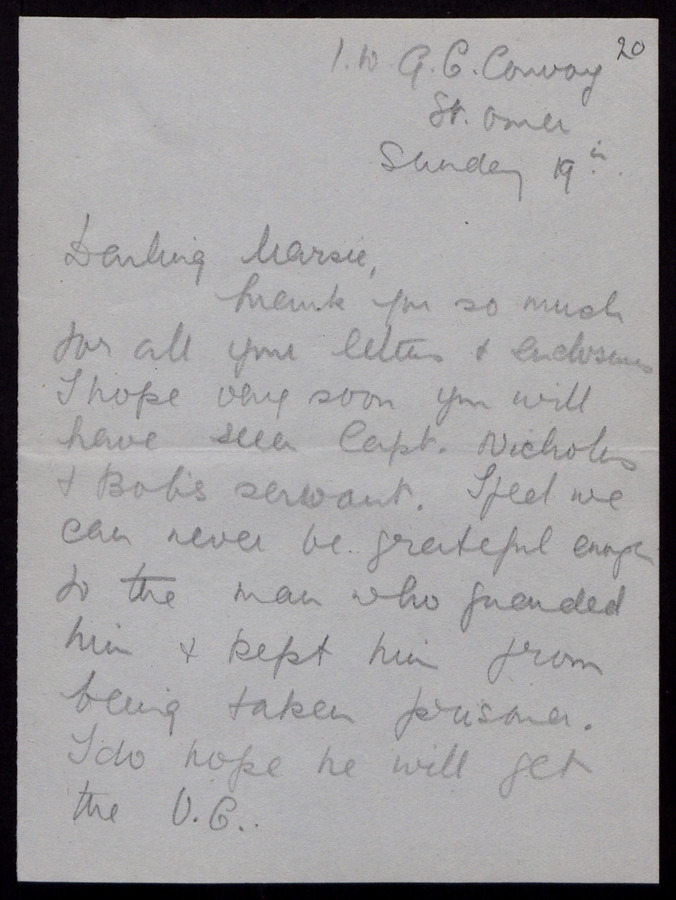 20
1. W. A. C. Convoy
St. Omer
Sunday 19th.
Darling Marsie,
Thank you so much
for all your letters & enclosures
I hope very soon you will
have seen Capt. Nicholls
& Bob's servant. I feel we
can never be grateful enough
to the man who guarded
him & kept him from
being taken prisoner.
I do hope he will get
the V.C..